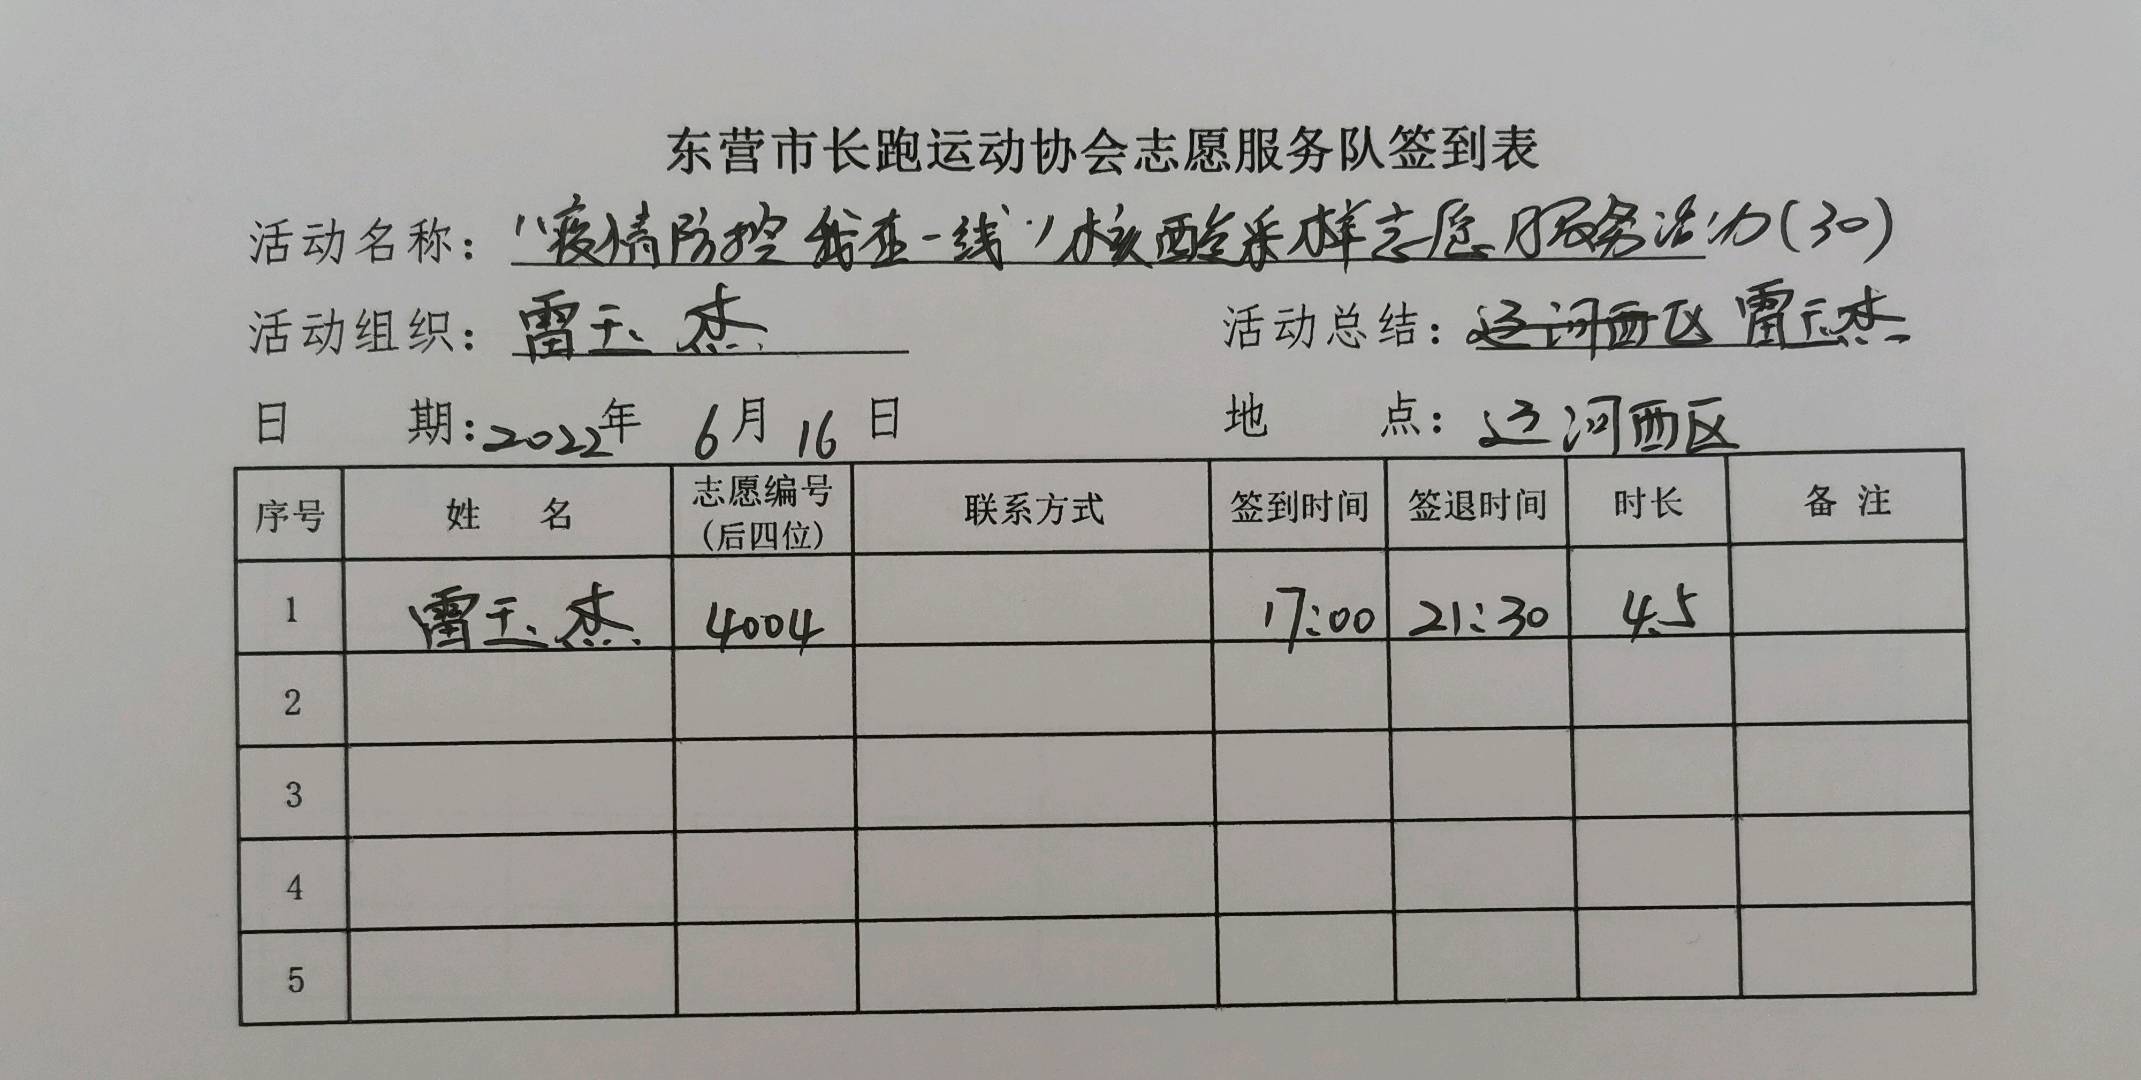 东营市长跑运动协会志愿服务队签到表
活动名称：“疫情防控我在一线”核酸采样志愿服务活动(30)
活动组织：雷玉杰 活动总结：辽河西区 雷玉杰
日 期：2022年 6月 16日 地 点：辽河西区
序号 姓 名 志愿编号(后四位) 联系方式 签到时间 签退时间 时长 备 注
1 雷玉杰 4004 17:00 21:30 4.5
2
3
4
5